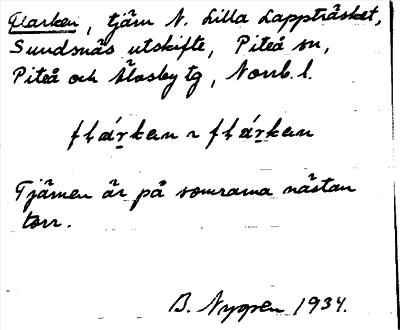 Flarken, tjärn N. Lilla Lappträsket,
Sundsnäs utskifte, Piteå sn,
Piteå och Älvsby tg, Norrb. l.
flárkan ~ flárkan
Tjärnen är på somrarna nästan
torr.
B. Nygren 1934.